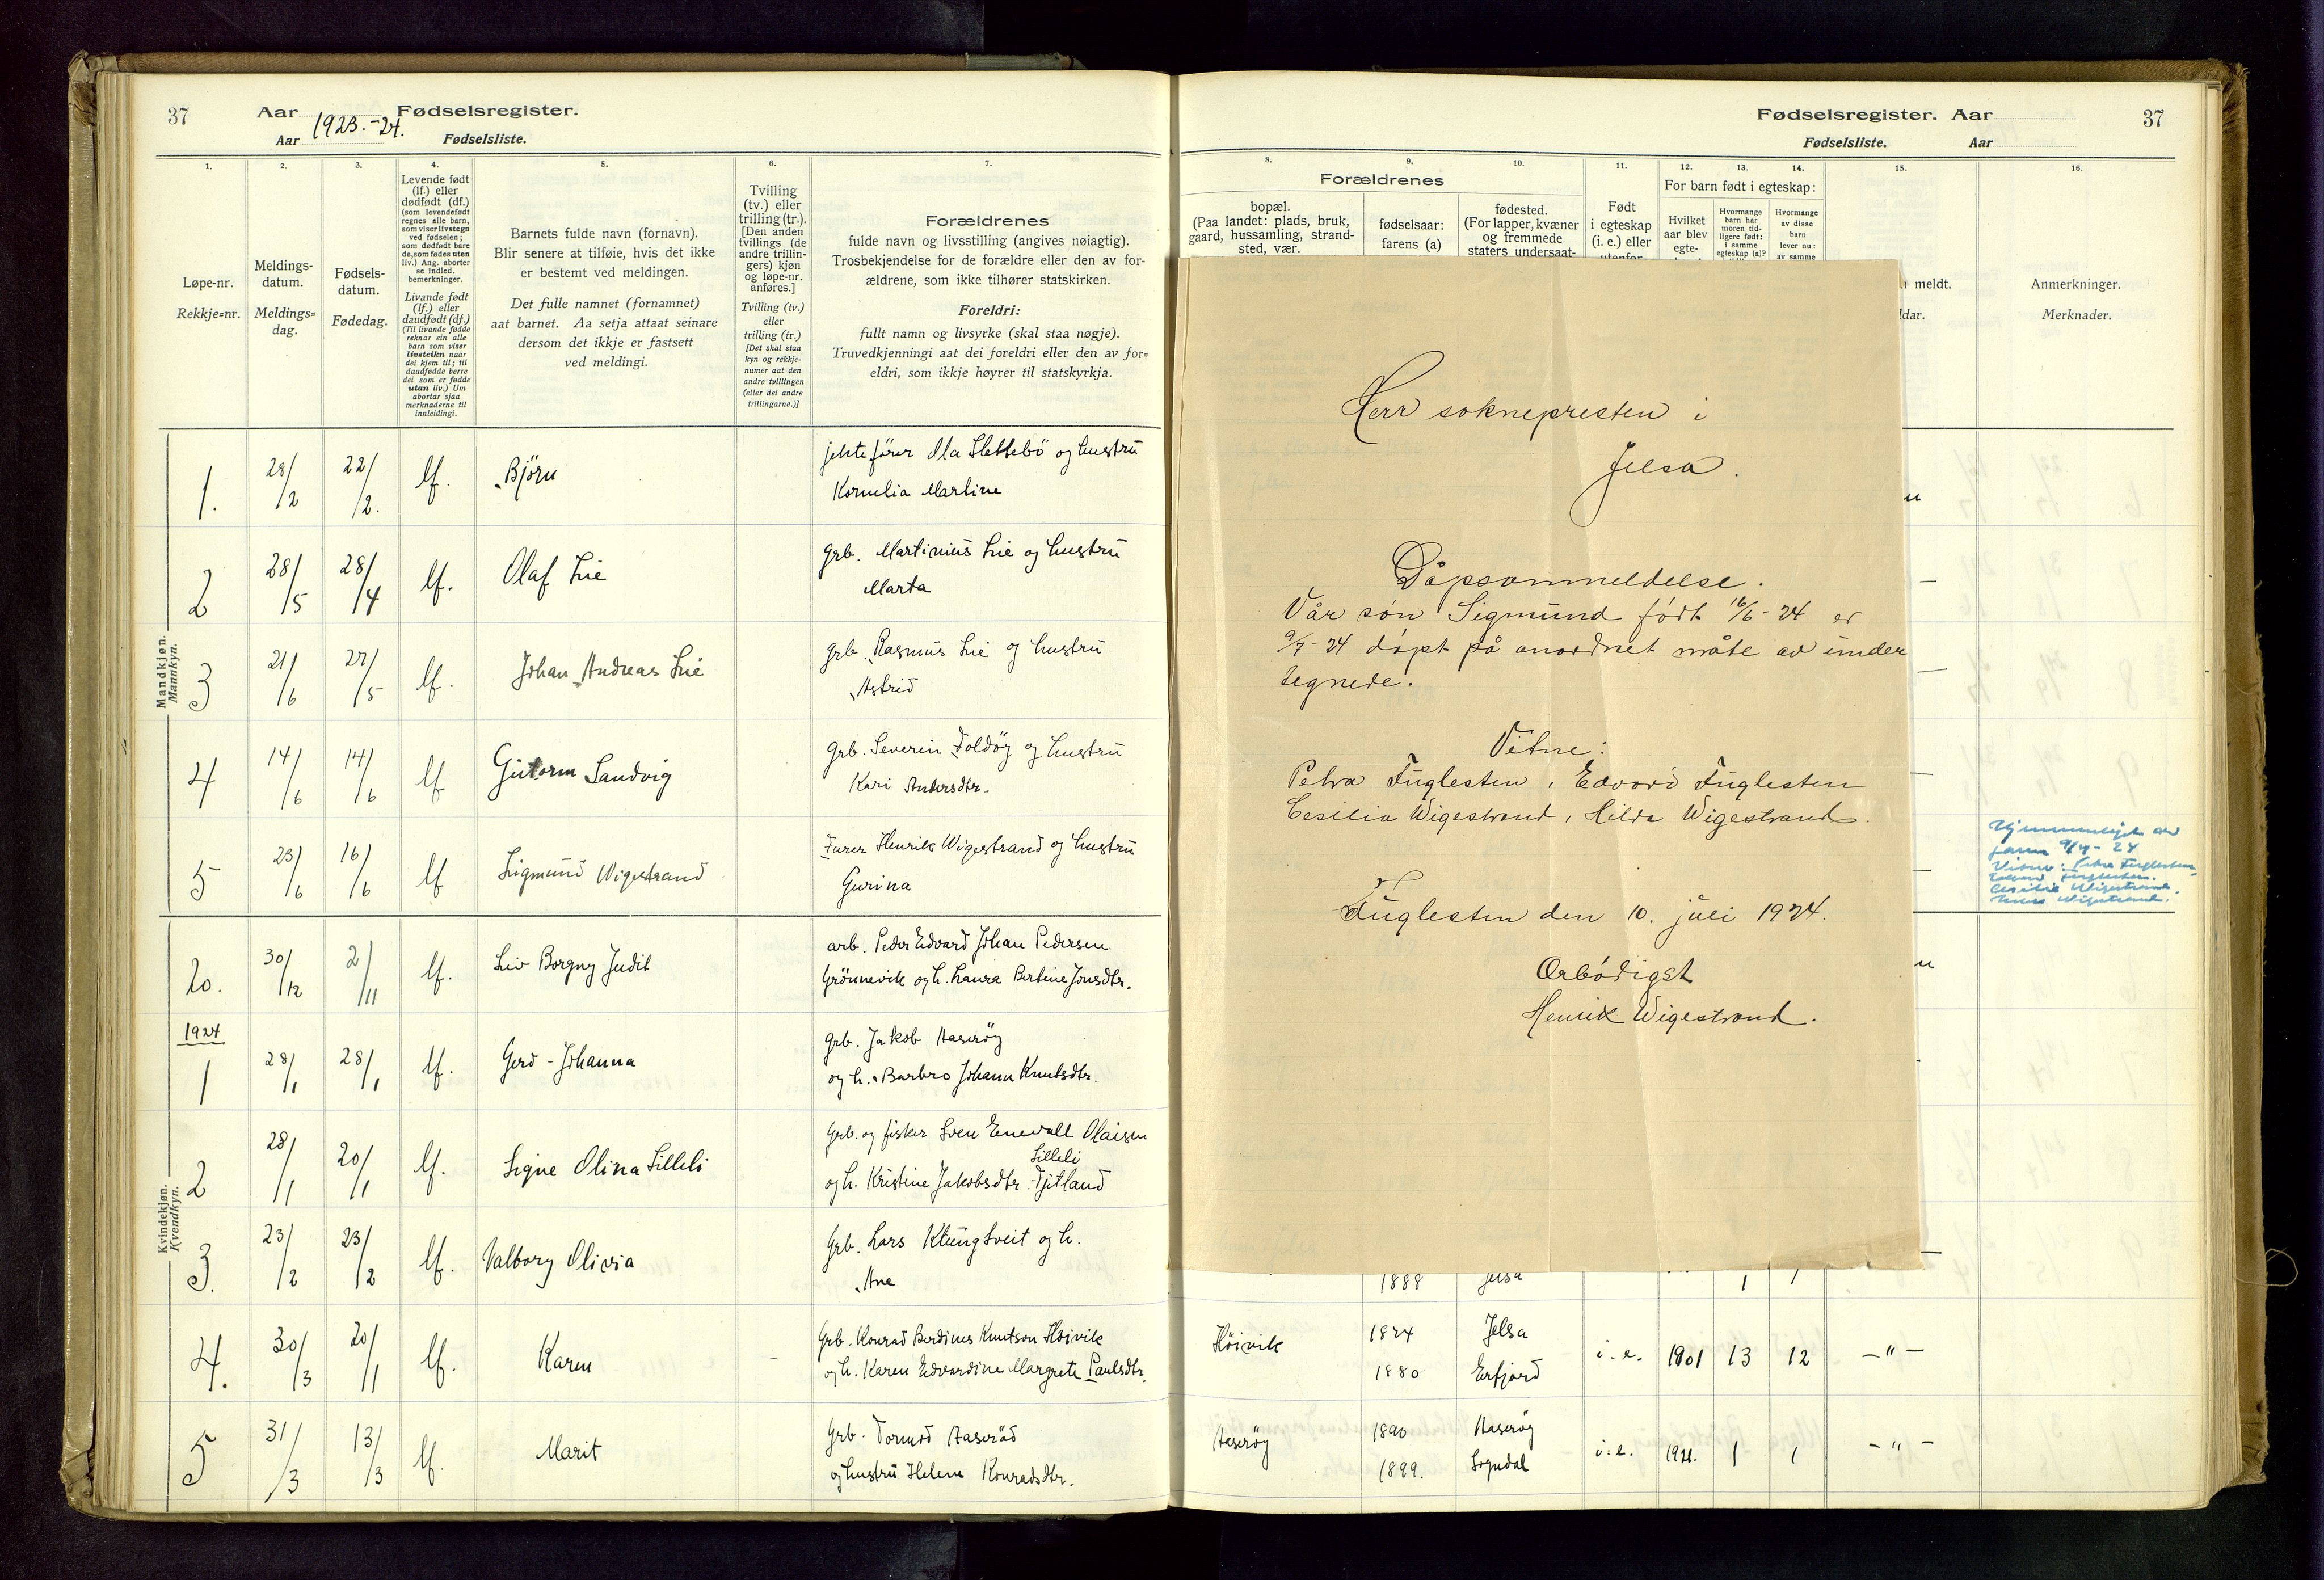 37 Aar 1923.-24. Fødselsregister.
Aar Fødselsliste.
1. 2. 3. 4. 5. 6. 7.
Løpe-nr.
Rekkje=nr.
Meldings-
datum.
Meldings=
dag.
Fødsels-
datum.
Fødedag.
Levende født
(lf.) eller
dødfødt (df.)
(som levendefødt
regnes alle barn,
som viser livstegn
ved fødselen;
som dødfødt bare
de, som fødes uten
liv.) Ang. aborter
se indled.
bemerkninger.
Livande født
(lf.) eller
daudfødt (df.)
(Til livande fødde
reknar ein alle
barn som viser
livsteikn naar
dei kjem til; til
daudfødde berre
dei som er fødde
utan liv.) Um
abortar sjaa
merknaderne til
innleidingi.
Barnets fulde navn (fornavn).
Blir senere at tilføie, hvis det ikke
er bestemt ved meldingen.
Det fulle namnet (fornamnet)
aat barnet. Aa setja attaat seinare
dersom det ikkje er fastsett
ved meldingi.
Tvilling
(tv.) eller
trilling (tr.).
[Den anden
tvillings (de
andre trillin-
gers) kjøn
og løpe-nr.
anføres.]
Tvilling (tv.)
eller
trilling (tr.)
[Det skal staa
kyn og rekkje-
numer aat den
andre tvillingen
(eller dei andre
trillingarne.)]
Forældrenes
fulde navn og livsstilling (angives nøiagtig).
Trosbekjendelse for de forældre eller den av for-
ældrene, som ikke tilhører statskirken.
Foreldri:
fullt namn og livsyrke (skal staa nøgje).
Truvedkjenningi aat dei foreldri eller den av for=
eldri, som ikkje høyrer til statskyrkja.
Mandkjøn.
Mannkyn.
1. 28/2 22/2. lf. Björn jektefører Ola Slettebö og hustru
Kornelia Martine
2 28/5 28/4 lf. Olaf Lie Grb. Martinius Lie og hustru
Marta
3 21/6 27/5 lf. Johan Andreas Lie Grb. Rasmus Lie og hustru
Astrid
4 14/6 14/6 lf Gutorm Sandvig Grb. Severin Foldöy og hustru
Kari Andersdtr.
5 23/6 16/6 lf Sigmund Wigestrand Furer Henrik Wigestrand og hustru
Gurina
Kvindekjøn.
Kvendkyn.
20. 30/12 2/11 lf. Liv Borgny Judit arb. Peder Edvard Johan Pedersen
Grönnevik og h. Laura Bertine Jonsdtr.
1924
1 28/1 28/1 lf. Gerd - Johanna Grb. Jakob Aaseröy
og h. Barbro Johanne Knutsdtr.
2 28/1 20/1 lf. Signe Olina Lilleli Grb. og fisker Sven Enevall Olaisen
Lilleli
og h. Kristine Jakobsdtr. Tjitland
3. 23/2 23/2 lf. Valborg Olivia Grb. Lars Klungtveit og h.
Ane
4. 30/3 20/1 lf. Karen Grb. Konrad Berdines Knutson Höivik
og h. Karen Edvardine Margrete Paulsdtr.
5 31/3 13/3 lf. Marit Grb. Tormod Aaseröd
og hustru Helene Konradsdtr.
Fødselsregister. Aar 37
Fødselsliste. Aar
8. 9. 10. 11. 12. 13. 14. 15. 16.
Forældrenes
bopæl.
(Paa landet: plads, bruk,
gaard, hussamling, strand-
sted, vær.
fødselsaar:
farens (a)
fødested.
(For lapper, kvæner
og fremmede
staters undersaat-
Født
i egteskap
(i. e.) eller
utenfor
For barn født i egteskap:
Hvilket
aar blev
egte-
Hvormange
barn har
moren tid-
ligere født:
i samme
egteskap (a)?
Hvormange
av disse
barn
lever nu:
av samme
meldt.
dar.
Anmerkninger.
Merknader.
Herr soknepresten i
Jelsa.
Dåpsanmeldelse.
Vår sön Sigmund födt 16/6-24 er
9/7-24 döpt på anordnet måte av under
tegnede.
Vitne:
Petra Fuglesten, Edvard Fuglesten
Cesilia Wigestrand, Hilda Wigestrand.
Fuglesten den 10. juli 1924.
Ærbödigst
Henrik Wigestrand.
Hjemmedöpt av
faren 9/7-24
Vitne: Petra Fuglesten,
Edvard Fuglesten.
Cesilia Wigestrand.
Hilda Wigestrand.
1888 Jelsa 1 1
Höivik 1874 Jelsa
1880 Erfjord i. e. 1901 13 12 — " —
Aaseröy 1890 Aaseröy
1899. Sogndal i. e. 1921. 1 1 — " —